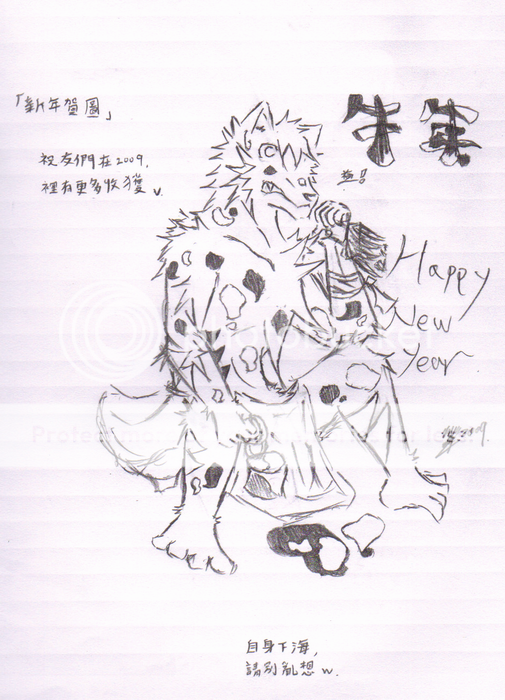 「新年賀圖」
祝友們在2009.
裡有更多收獲 w.
牛年
Happy
New
Year
自身下海,
請別亂想 w.